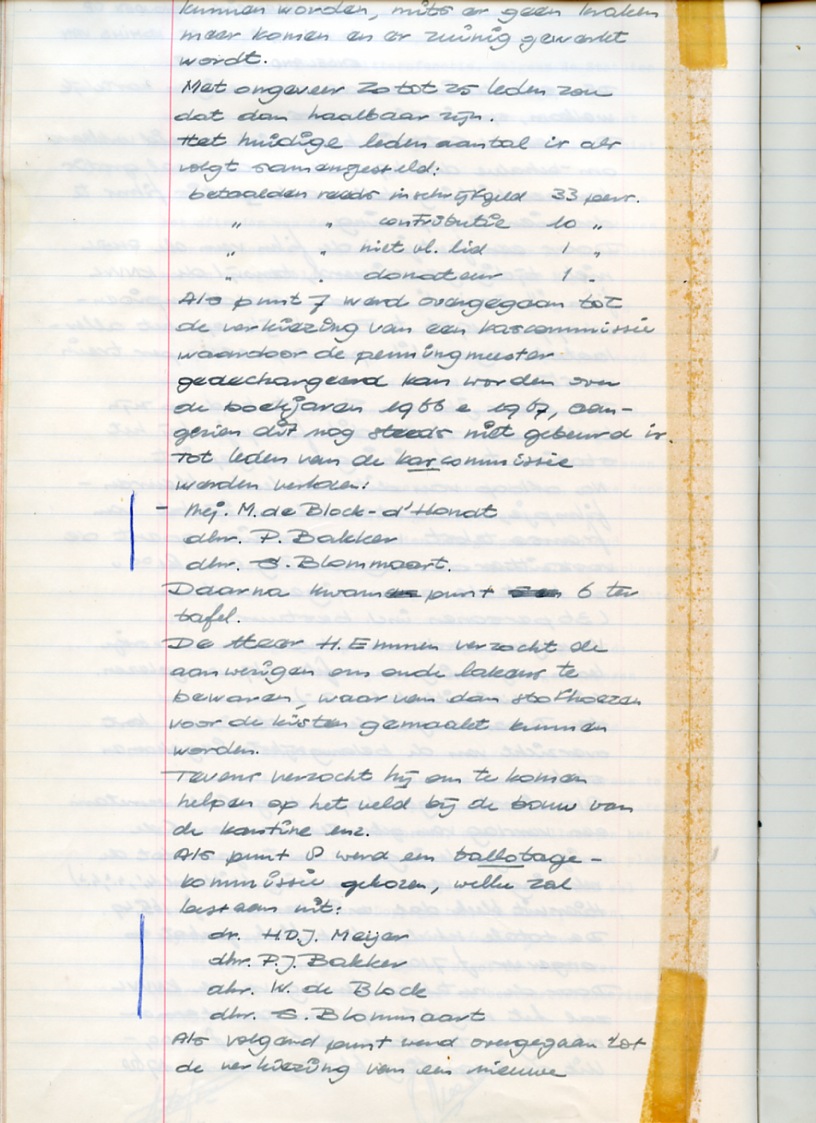 kunnen worden, mits er geen kraken
meer komen en er zuinig gewerkt
wordt.
Met ongeveer 20 tot 25 leden zou
dat dan haalbaar zijn.
Het huidige leden aantal is als
volgt samengesteld:
betaalden reeds inschrijfgeld 33 pers.
" " contributie 10 "
" " niet vl. lid 1 "
" " donateur 1 "
Als punt 7 werd overgegaan tot
de verkiezing van een kascommissie
waardoor de penningmeester
gedechargeerd kan worden over
de boekjaren 1966 e 1967, aan-
gezien dit nog steeds niet gebeurd is.
Tot leden van de kascommissie
werden verkozen:
- Mej. M. de Block - d'Hondt
dhr. P. Bakker
dhr. S. Blommaart.
Daarna kwam punt 6 ter
tafel.
De Heer H. Emmen verzocht de
aanwezigen om oude lakens te
bewaren, waar van dan stofhoezen
voor de kisten gemaakt kunnen
worden.
Tevens verzocht hij om te komen
helpen op het veld bij de bouw van
de kantine enz.
Als punt 8 werd een ballotage-
kommissie gekozen, welke zal
bestaan uit:
dr. H.D.J. Meijer
dhr. P.J. Bakker
dhr. W. de Block
dhr. S. Blommaart
Als volgend punt werd overgegaan tot
de verkiezing van een nieuwe